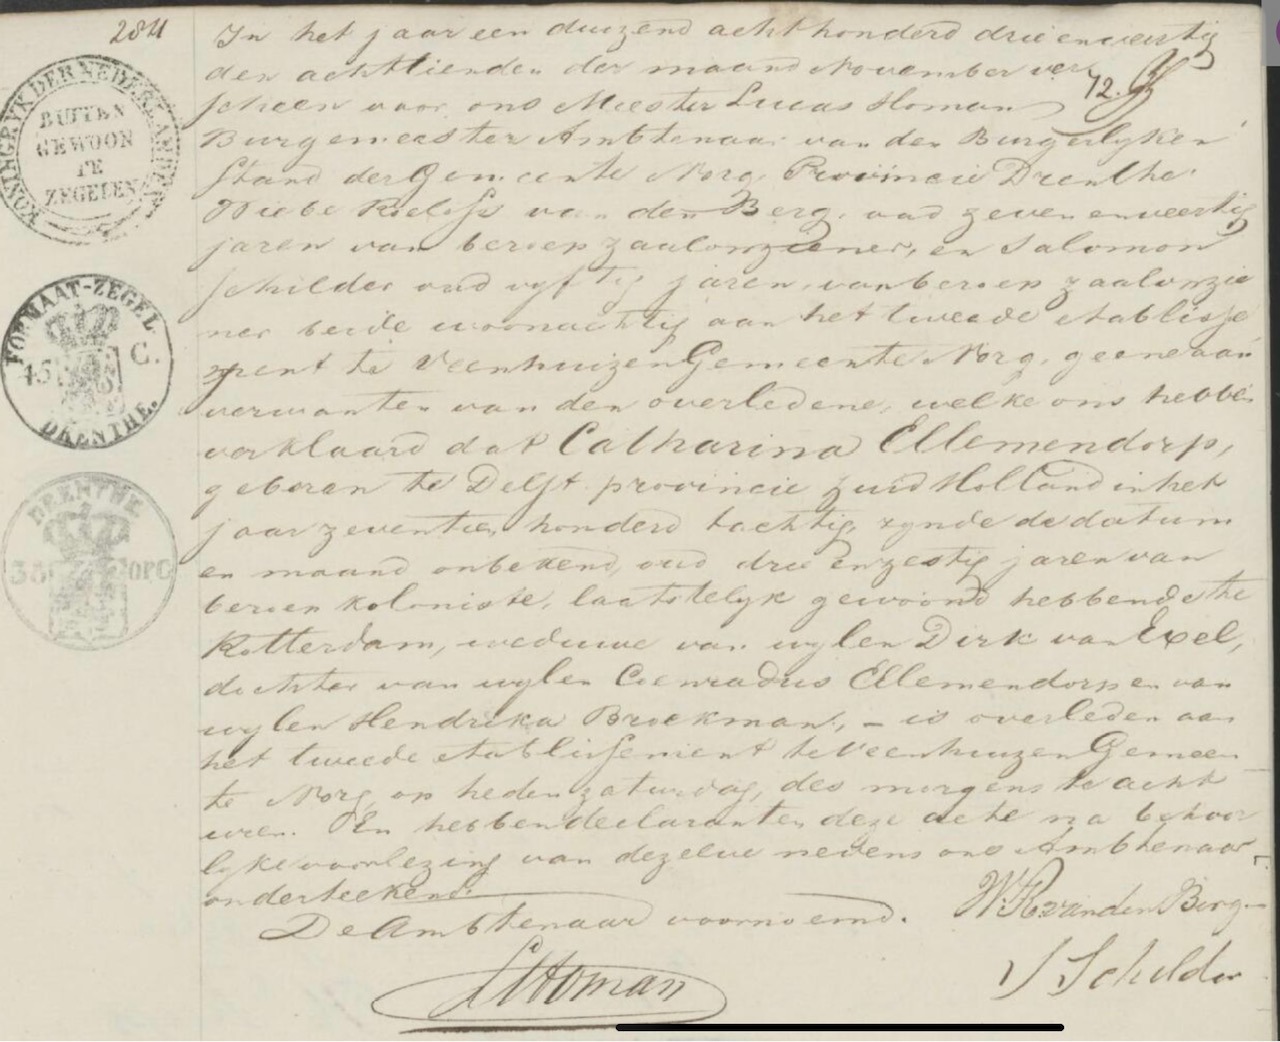 2811
In het jaar een duizend acht honderd drie en veertig
den achttienden der maand November ver
72.
scheen voor ons Meester Lucas Homan
Burgemeester Ambtenaar van den Burgerlyken
Stand der Gemeente Norg, Provincie Drenthe
Wiebe Roelofs van den Berg, oud zeven en veertig
jaren van beroep zaalopziener, en Salomon
Schilder oud vyftig jaren, van beroep zaalopzie
ner beide woonachtig aan het tweede etablisse
ment te Veenhuizen Gemeente Norg, geene aan
verwanten van den overledene, welke ons hebben
verklaard dat Catharina Ellemendorp,
geboren te Delft provincie Zuid Holland in het
jaar zeventien honderd tachtig, zynde de datum
en maand onbekend, oud drie en zestig jaren van
beroep koloniste, laatstelyk gewoond hebbende te
Rotterdam, weduwe van wylen Dirk van Exel,
dochter van wylen Coenradus Ellemendorp en van
wylen Hendrika Broekman, – is overleden aan
het tweede etablissement te Veenhuizen Gemeen
te Norg, op heden zaturdag, des morgens te acht
uren. En hebben declaranten deze acte na behoor
lyke voorlezing van dezelve nevens ons Ambtenaar
onderteekend.
De Ambtenaar voornoemd.
W R van den Berg
L Homan
S Schilder
KONINGRYK DER NEDERLANDEN
BUITEN
GEWOON
TE
ZEGELEN
FORMAAT-ZEGEL
45 C.
DRENTHE.
DRENTHE
38 OPC